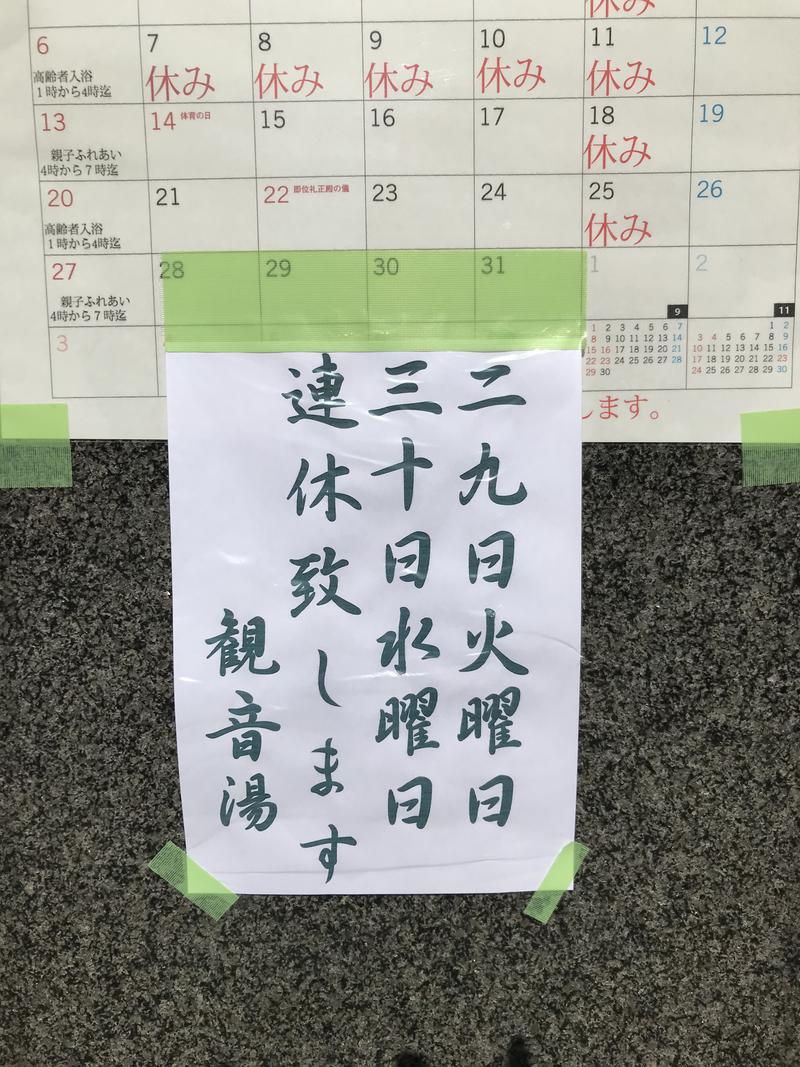 休み
6 7 8 9 10 11 12
高齢者入浴
1時から4時迄
休み 休み 休み 休み 休み
13 14 体育の日 15 16 17 18 19
親子ふれあい
4時から7時迄
休み
20 21 22 即位礼正殿の儀 23 24 25 26
高齢者入浴
1時から4時迄
休み
27 28 29 30 31 1 2
親子ふれあい
4時から7時迄
3
9
1 2 3 4 5 6 7
8 9 10 11 12 13 14
15 16 17 18 19 20 21
22 23 24 25 26 27 28
29 30
11
1 2
3 4 5 6 7 8 9
10 11 12 13 14 15 16
17 18 19 20 21 22 23
24 25 26 27 28 29 30
します。
二九日火曜日
三十日水曜日
連休致します
観音湯